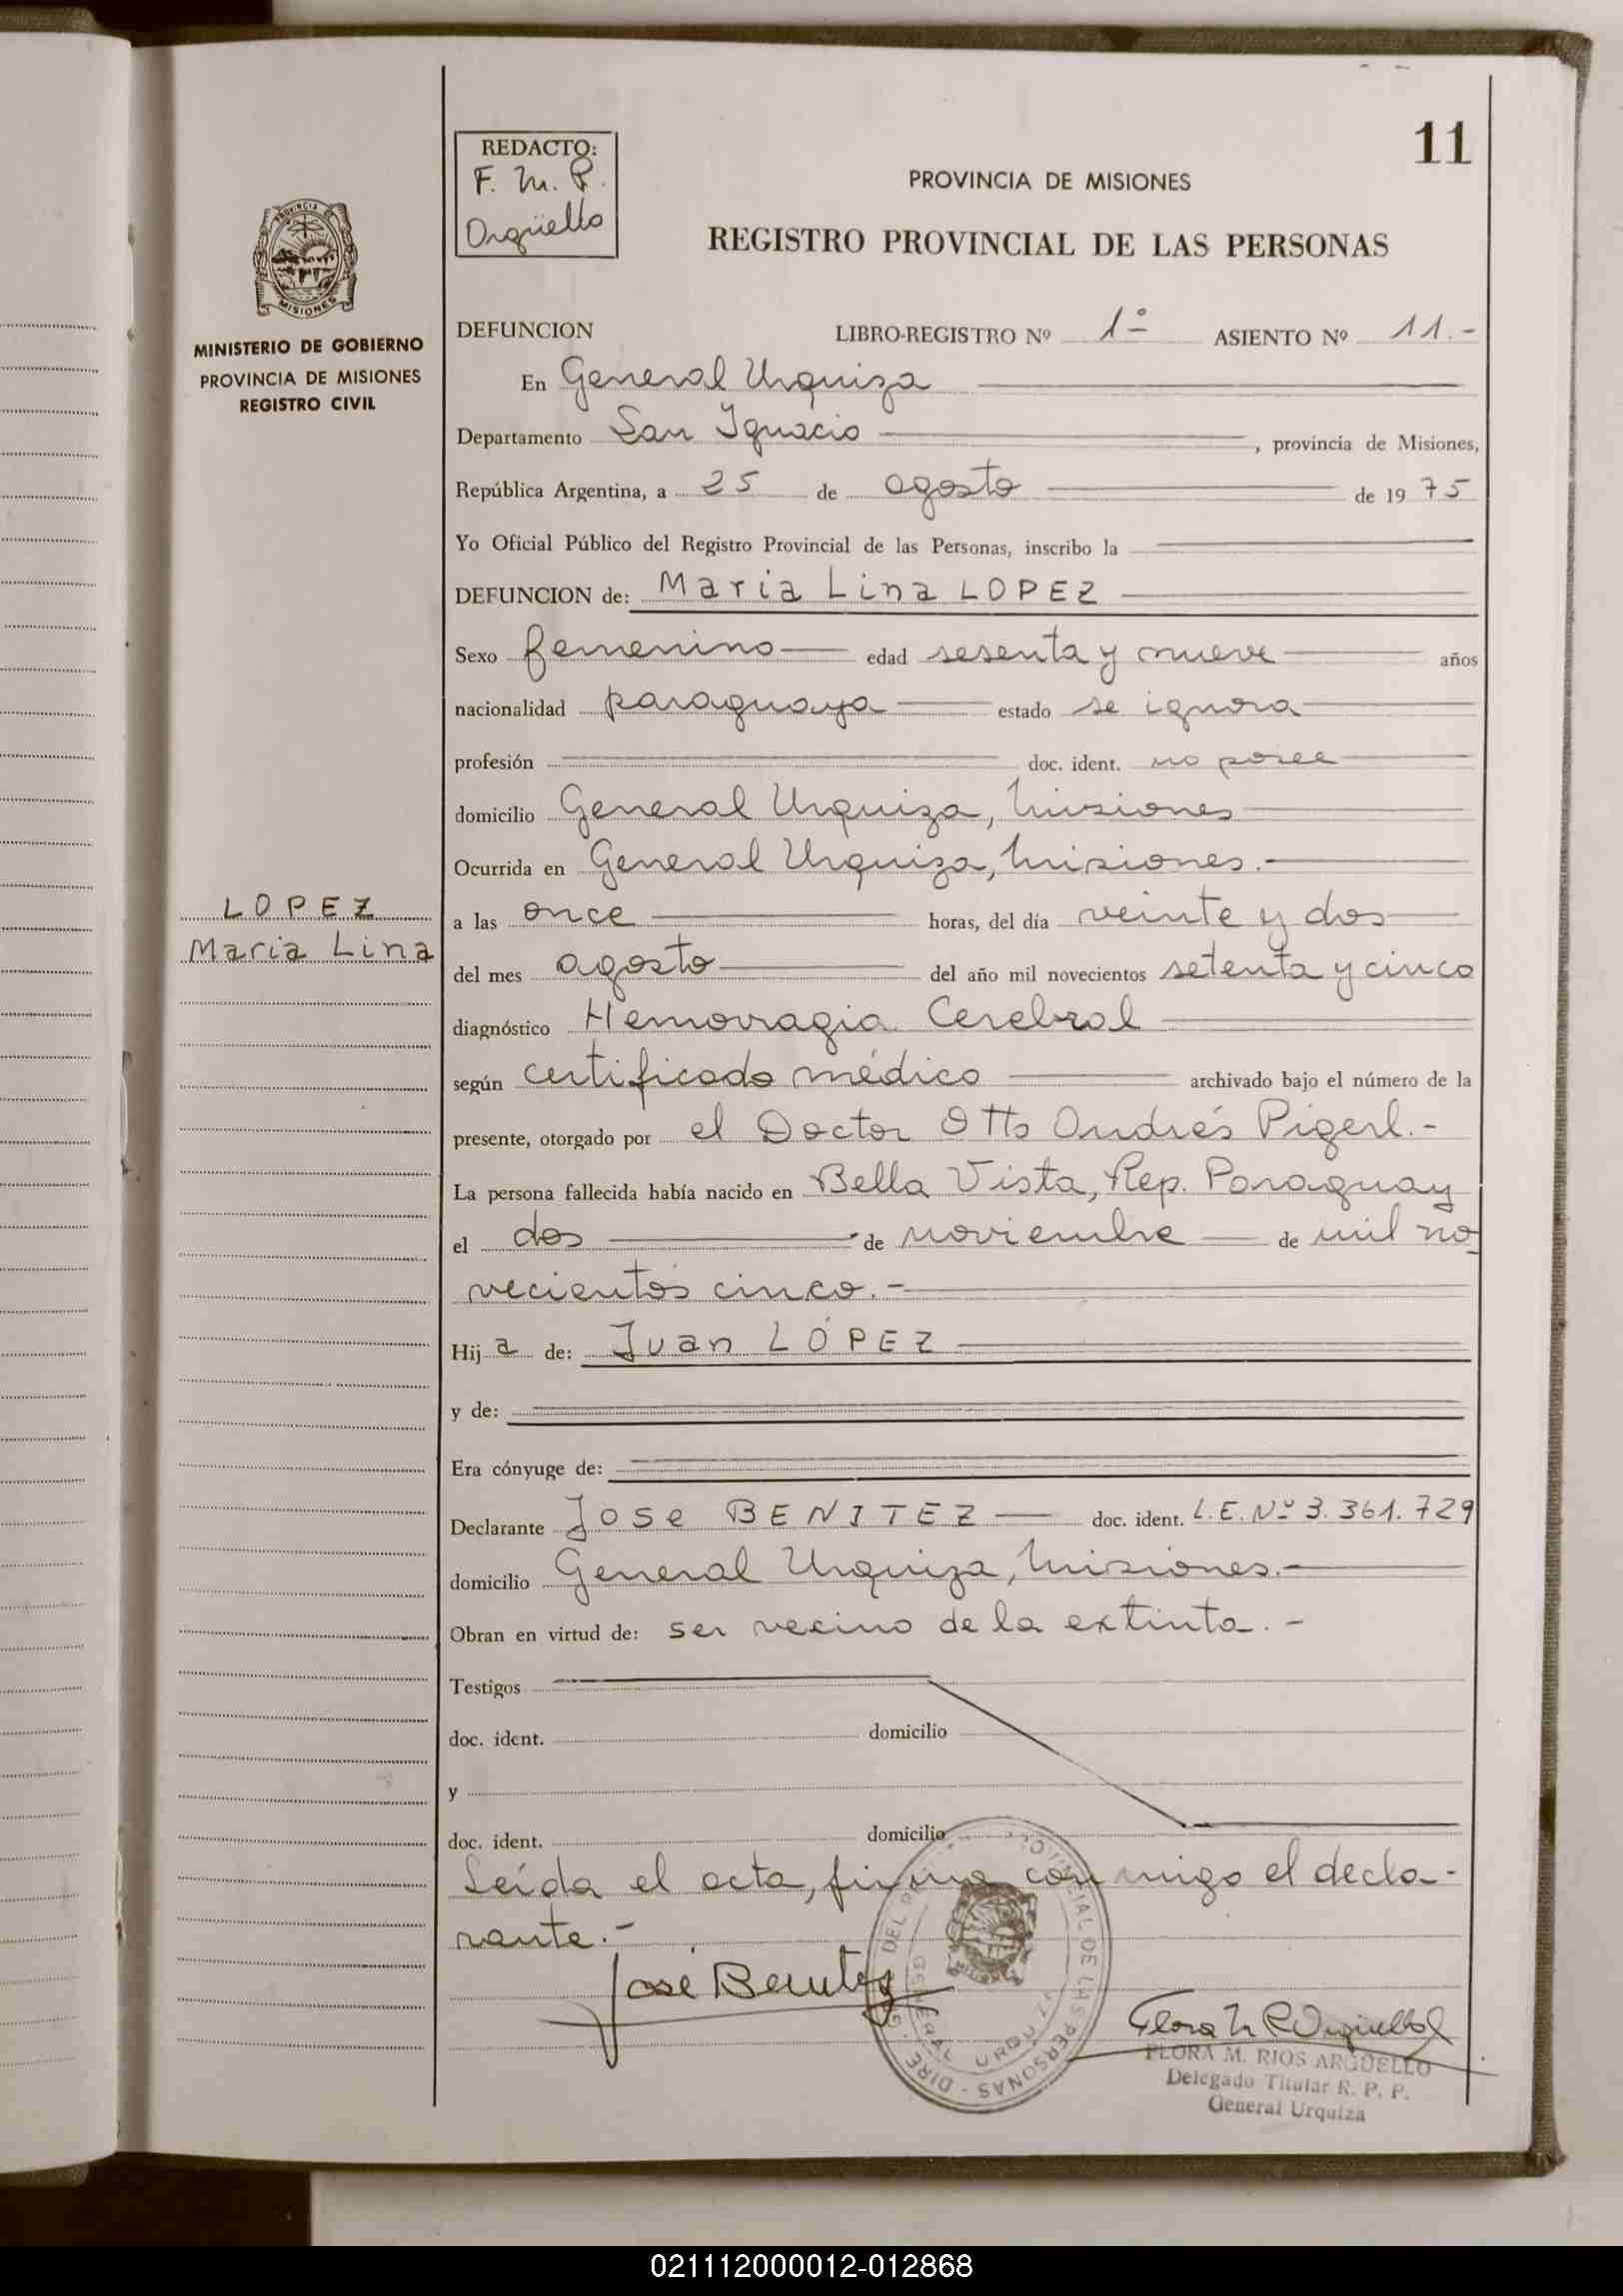 11
REDACTO:
F. M. R.
Argüello
PROVINCIA DE MISIONES
REGISTRO PROVINCIAL DE LAS PERSONAS
PROVINCIA DE
MISIONES
MINISTERIO DE GOBIERNO
PROVINCIA DE MISIONES
REGISTRO CIVIL
DEFUNCION LIBRO-REGISTRO Nº 1º ASIENTO Nº 11.-
En General Urquiza
Departamento San Ignacio , provincia de Misiones,
República Argentina, a 25 de agosto de 1975
Yo Oficial Público del Registro Provincial de las Personas, inscribo la
DEFUNCION de: Maria Lina LOPEZ
Sexo femenino edad sesenta y nueve años
nacionalidad paraguaya estado se ignora
profesión doc. ident. no posee
domicilio General Urquiza, Misiones
Ocurrida en General Urquiza, Misiones.-
LOPEZ
Maria Lina
a las once horas, del día veinte y dos
del mes agosto del año mil novecientos setenta y cinco
diagnóstico Hemorragia Cerebral
según certificado médico archivado bajo el número de la
presente, otorgado por el Doctor Otto Andrés Pigerl.-
La persona fallecida había nacido en Bella Vista, Rep. Paraguay
el dos de noviembre de mil no
vecientos cinco.-
Hija de: Juan LÓPEZ
y de:
Era cónyuge de:
Declarante Jose BENITEZ doc. ident. L.E. Nº 3.361.729
domicilio General Urquiza, Misiones.-
Obran en virtud de: ser vecino de la extinta.-
Testigos
doc. ident. domicilio
y
doc. ident. domicilio
Leída el acta, firma conmigo el decla-
rante.-
José Benitez
PROVINCIAL DE LAS PERSONAS - DIRE
GENERAL URQUIZA
Flora M R Argüello
FLORA M. RIOS ARGÜELLO
Delegado Titular R. P. P.
General Urquiza
021112000012-012868